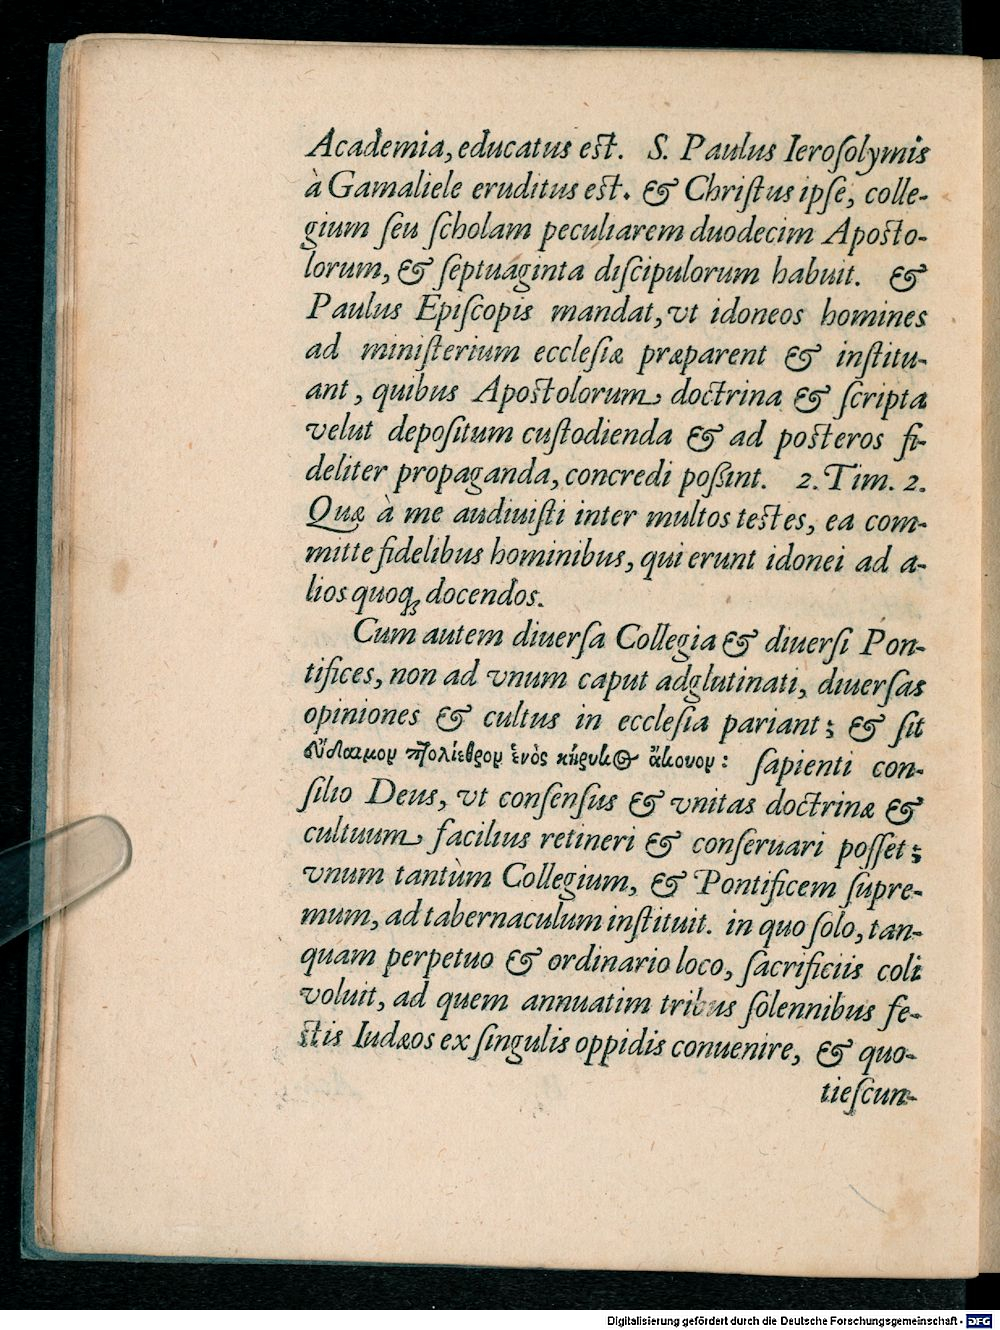 Academia, educatus est. S. Paulus Ierosolymis
à Gamaliele eruditus est. & Christus ipse, colle-
gium seu scholam peculiarem duodecim Aposto-
lorum, & septuaginta discipulorum habuit. &
Paulus Episcopis mandat, vt idoneos homines
ad ministerium ecclesiæ præparent & institu-
ant, quibus Apostolorum doctrina & scripta
velut depositum custodienda & ad posteros fi-
deliter propaganda, concredi poßint. 2. Tim. 2.
Quæ à me audiuisti inter multos testes, ea com-
mitte fidelibus hominibus, qui erunt idonei ad a-
lios quoqꝫ docendos.
Cum autem diuersa Collegia & diuersi Pon-
tifices, non ad vnum caput adglutinati, diuersas
opiniones & cultus in ecclesia pariant; & sit
εὔδαιμον πτολίεθρον ἑνὸς κήρυκος ἄκουον: sapienti con-
silio Deus, vt consensus & vnitas doctrinæ &
cultuum facilius retineri & conseruari posset;
vnum tantùm Collegium, & Pontificem supre-
mum, ad tabernaculum instituit. in quo solo, tan-
quam perpetuo & ordinario loco, sacrificiis coli
voluit, ad quem annuatim tribus solennibus fe-
stis Iudæos ex singulis oppidis conuenire, & quo-
tiescun-
Digitalisierung gefördert durch die Deutsche Forschungsgemeinschaft - DFG